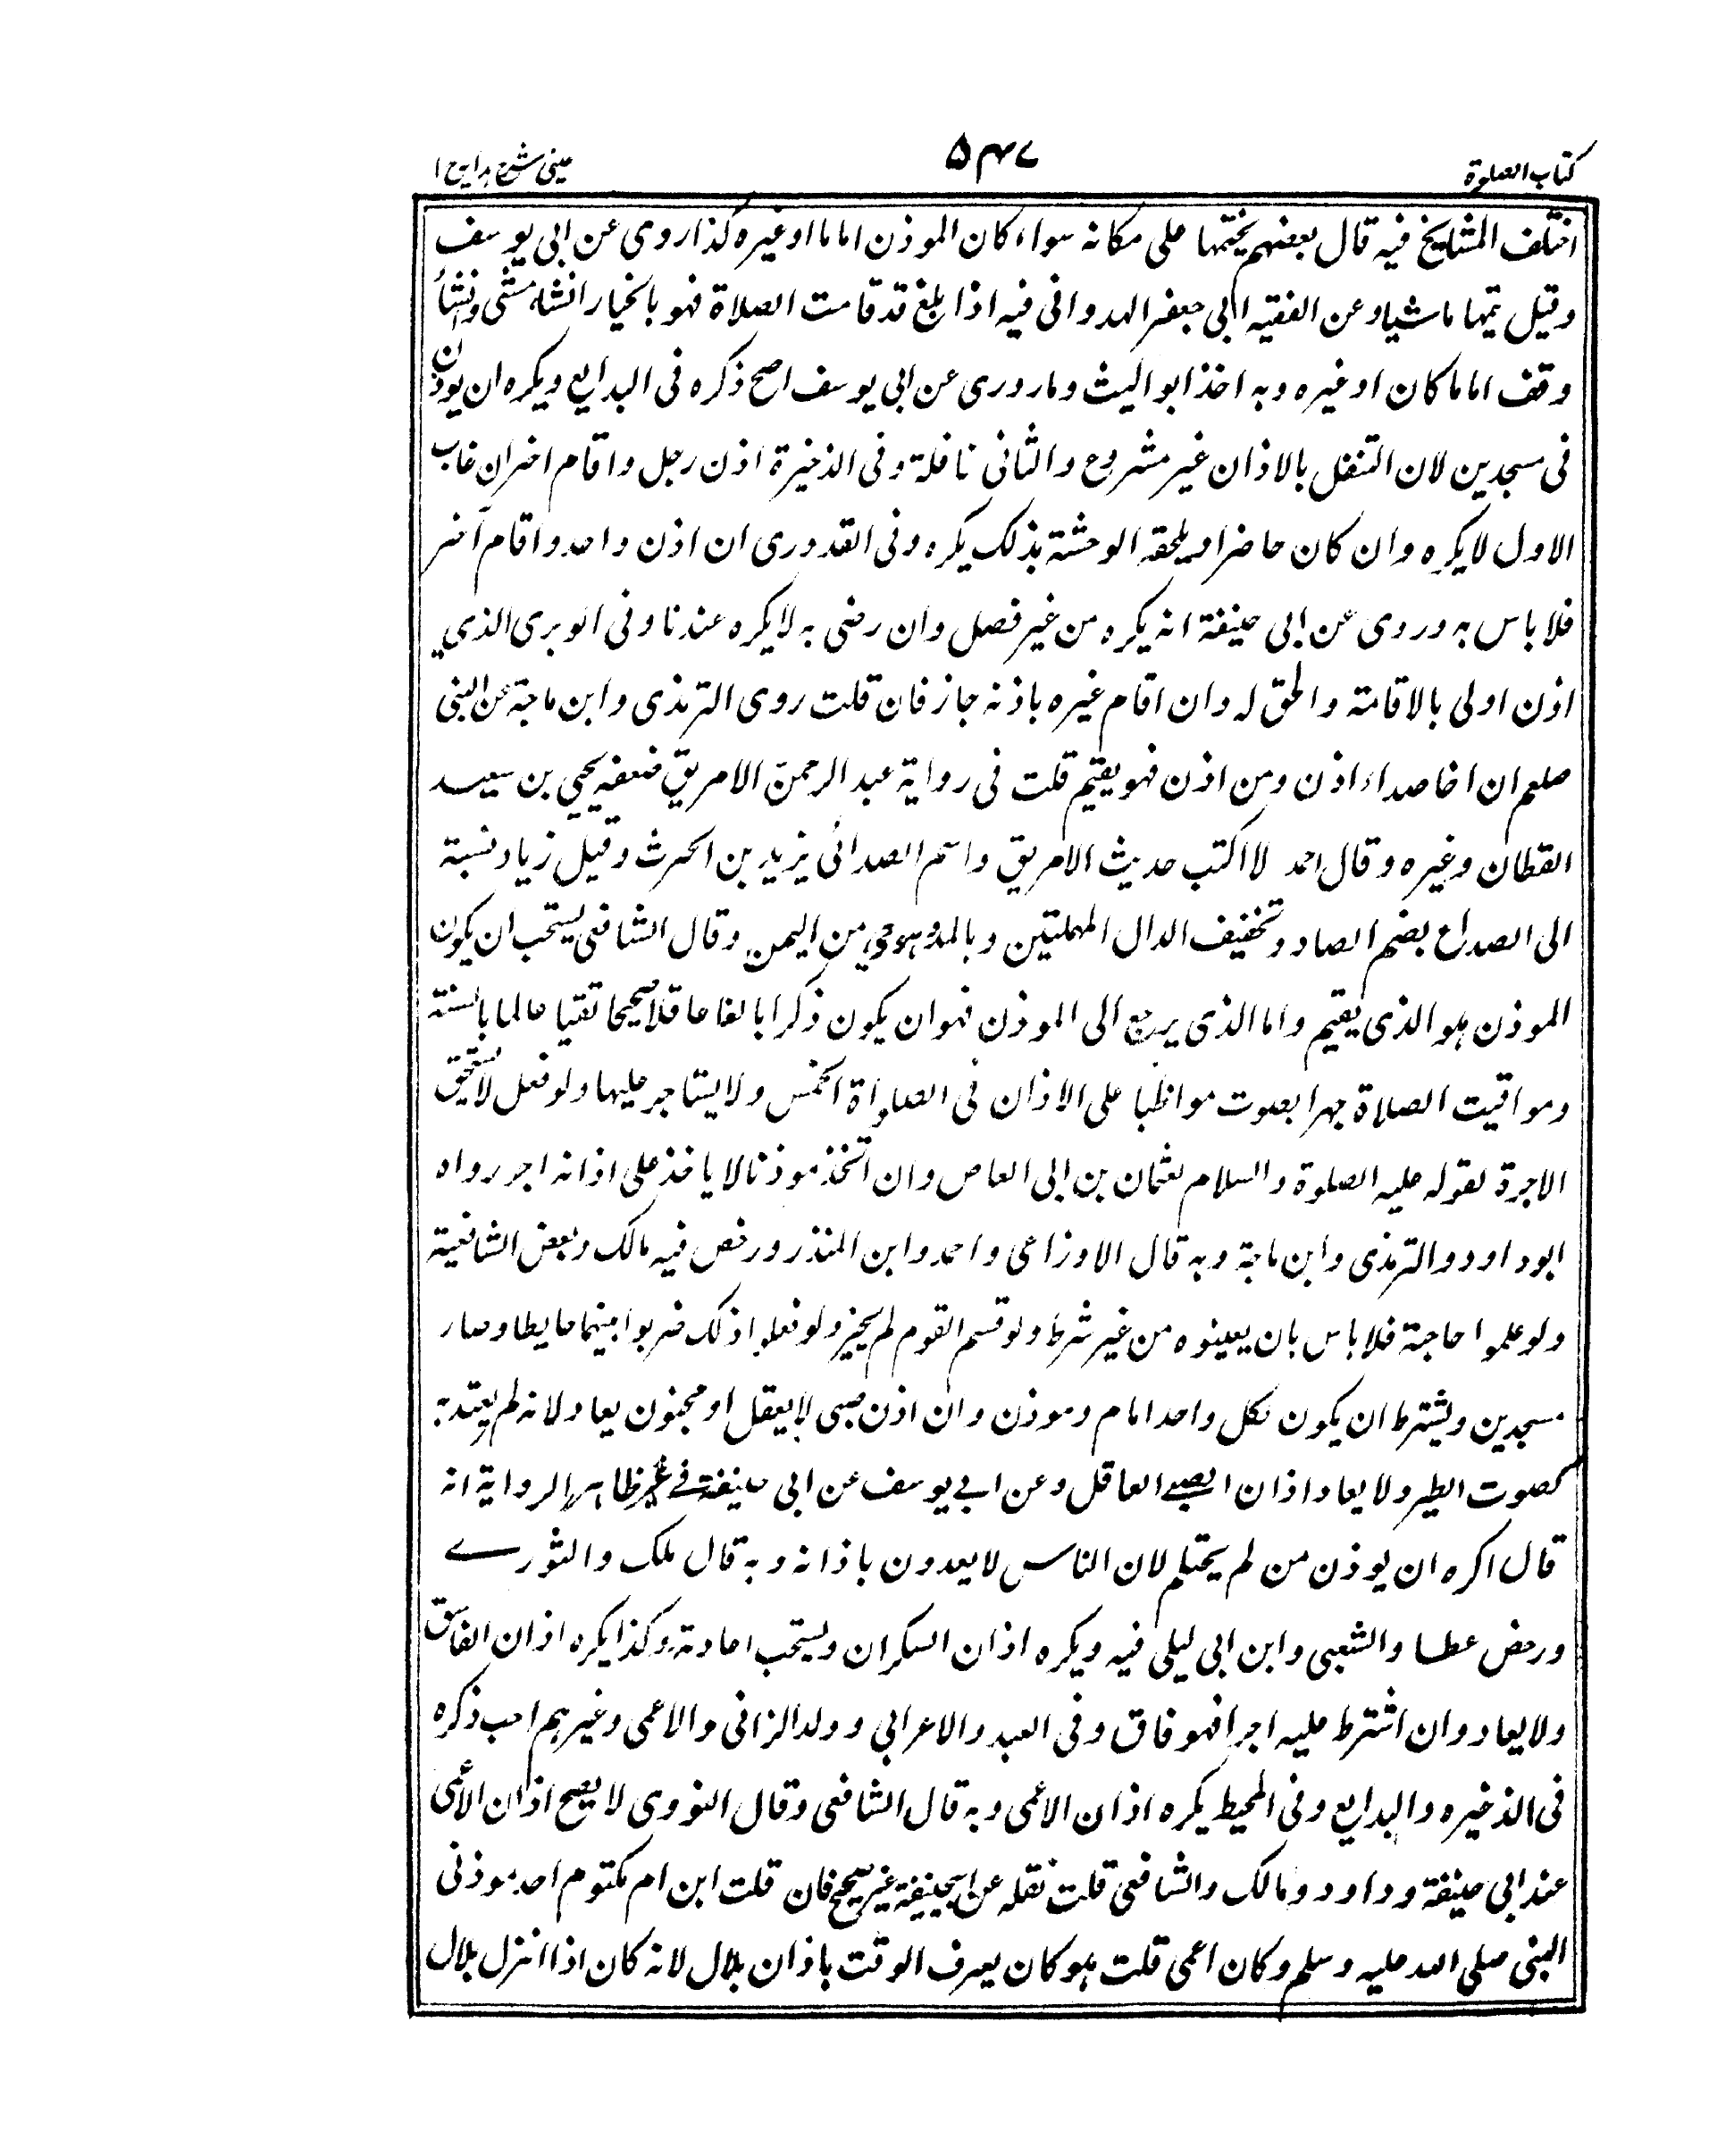 كتاب الصلوة
۵۴۷
عينى شرح هدايہ ج ۱
اختلف المشايخ فيه قال بعضهم يختمها على مكانه سواء كان الموذن اماما او غيره كذا روى عن ابى يوسف
وقيل يتمها ماشيا وعن الفقيه ابى جعفر الهدوانى فيه اذا بلغ قد قامت الصلاة فهو بالخيار انشاء مشى وانشأ
وقف اماما كان او غيره وبه اخذ ابو اليث وما روى عن ابى يوسف اصح ذكره فى البدايع ويكره ان يوذن
فى مسجدين لان التنفل بالاذان غير مشروع والثانى نافلة وفى الذخيرة اذن رجل واقام اخر ان غاب
الاول لا يكره وان كان حاضرا ويلحقه الوحشة بذلك يكره وفى القدورى ان اذن واحد واقام آخر
فلا باس به وروى عن ابى حنيفة انه يكره من غير فصل وان رضى به لا يكره عندنا وفى الوبرى الذي
اذن اولى بالاقامة والحق له وان اقام غيره باذنه جاز فان قلت روى الترمذى وابن ماجة عن النبى
صلعم ان اخا صداء اذن ومن اذن فهو يقيم قلت فى رواية عبد الرحمن الامريق ضعفه يحيي بن سعيد
القطان وغيره وقال احمد لا اكتب حديث الامريق واسم الصدائى يزيد بن الحرث وقيل زياد نسبة
الى الصداع بضم الصاد وتخفيف الدال المهملتين وبالمد وهو حي من اليمن وقال الشافعى يستحب ان يكون
الموذن هو الذى يقيم واما الذى يرجع الى الموذن فهو ان يكون ذكرا بالغا عاقلا صحيحا تقيا عالما بالسنة
ومواقيت الصلاة جهرا بصوت مواظبا على الاذان فى الصلواة الخمس ولا يستاجر عليها ولو فعل لا يستحق
الاجرة لقوله عليه الصلوة والسلام لعثمان بن ابى العاص وان اتخذ موذنا لا ياخذ على اذانه اجر رواه
ابو داود والترمذى وابن ماجة وبه قال الاوزاعى واحمد وابن المنذر ورخص فيه مالك وبعض الشافعية
ولو علموا حاجة فلا باس بان يعينوه من غير شرط ولو قسم القوم لم يجيز ولو فعلوا ذلك ضربوا بينهما حايطا وصار
مسجدين ويشترط ان يكون لكل واحد امام وموذن وان اذن صبى لا يعقل او مجنون يعاد لانه لم يعتد به
كصوت الطير ولا يعاد اذان الصبے العاقل وعن ابے يوسف عن ابى حنيفة فے غير ظاهر الرواية انه
قال اكره ان يوذن من لم يحتلم لان الناس لا يعدون باذانه وبه قال ملك والثورے
ورخص عطا والشعبى وابن ابى ليلى فيه ويكره اذان السكران ويستحب اعادته وكذا يكره اذان الفاسق
ولا يعاد وان اشترط عليه اجرا فهو فاق وفى العبد والاعرابي وولد الزانى والاعمى وغيرهم احب ذكره
فى الذخيره والبدايع وفى المحيط يكره اذان الاعمى وبه قال الشافعى وقال النووى لا يصح اذان الاعمى
عند ابى حنيفة وداود ومالك والشافعى قلت نقله عن ابيحنيفة غير صحيح فان قلت ابن ام مكتوم احد موذنى
النبى صلى الله عليه وسلم وكان اعمى قلت هو كان يعرف الوقت باذان بلال لانه كان اذا انزل بلال